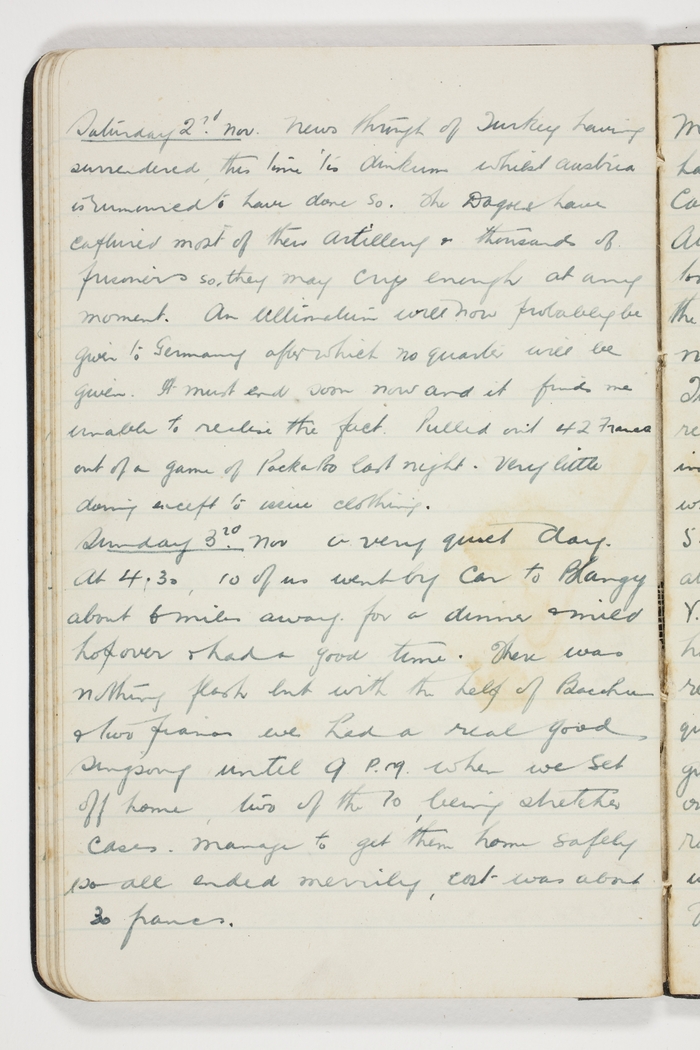 Saturday 2nd Nov. News through of Turkey having
surrendered, this time 'tis dinkum whilst Austria
is rumoured to have done so. The Dagoes have
captured most of their Artillery & thousands of
prisoners so, they may cry enough at any
moment. An Ultimatum will now probably be
given to Germany after which no quarter will be
given. It must end soon now and it finds me
unable to realise the fact. Pulled out 42 Francs
out of a game of Packapoo last night. Very little
doing except to issue clothing.
Sunday 3rd Nov a very quiet day.
At 4.30, 10 of us went by Car to Blangy
about 6 miles away for a dinner & mild
hopover & had a good time. There was
nothing flash but with the help of Bacchus
& two pianos we had a real good
singsong until 9 P.M. when we set
off home, two of the 10, being stretcher
cases. Manage to get them home safely
so all ended merrily, cost was about
30 francs.